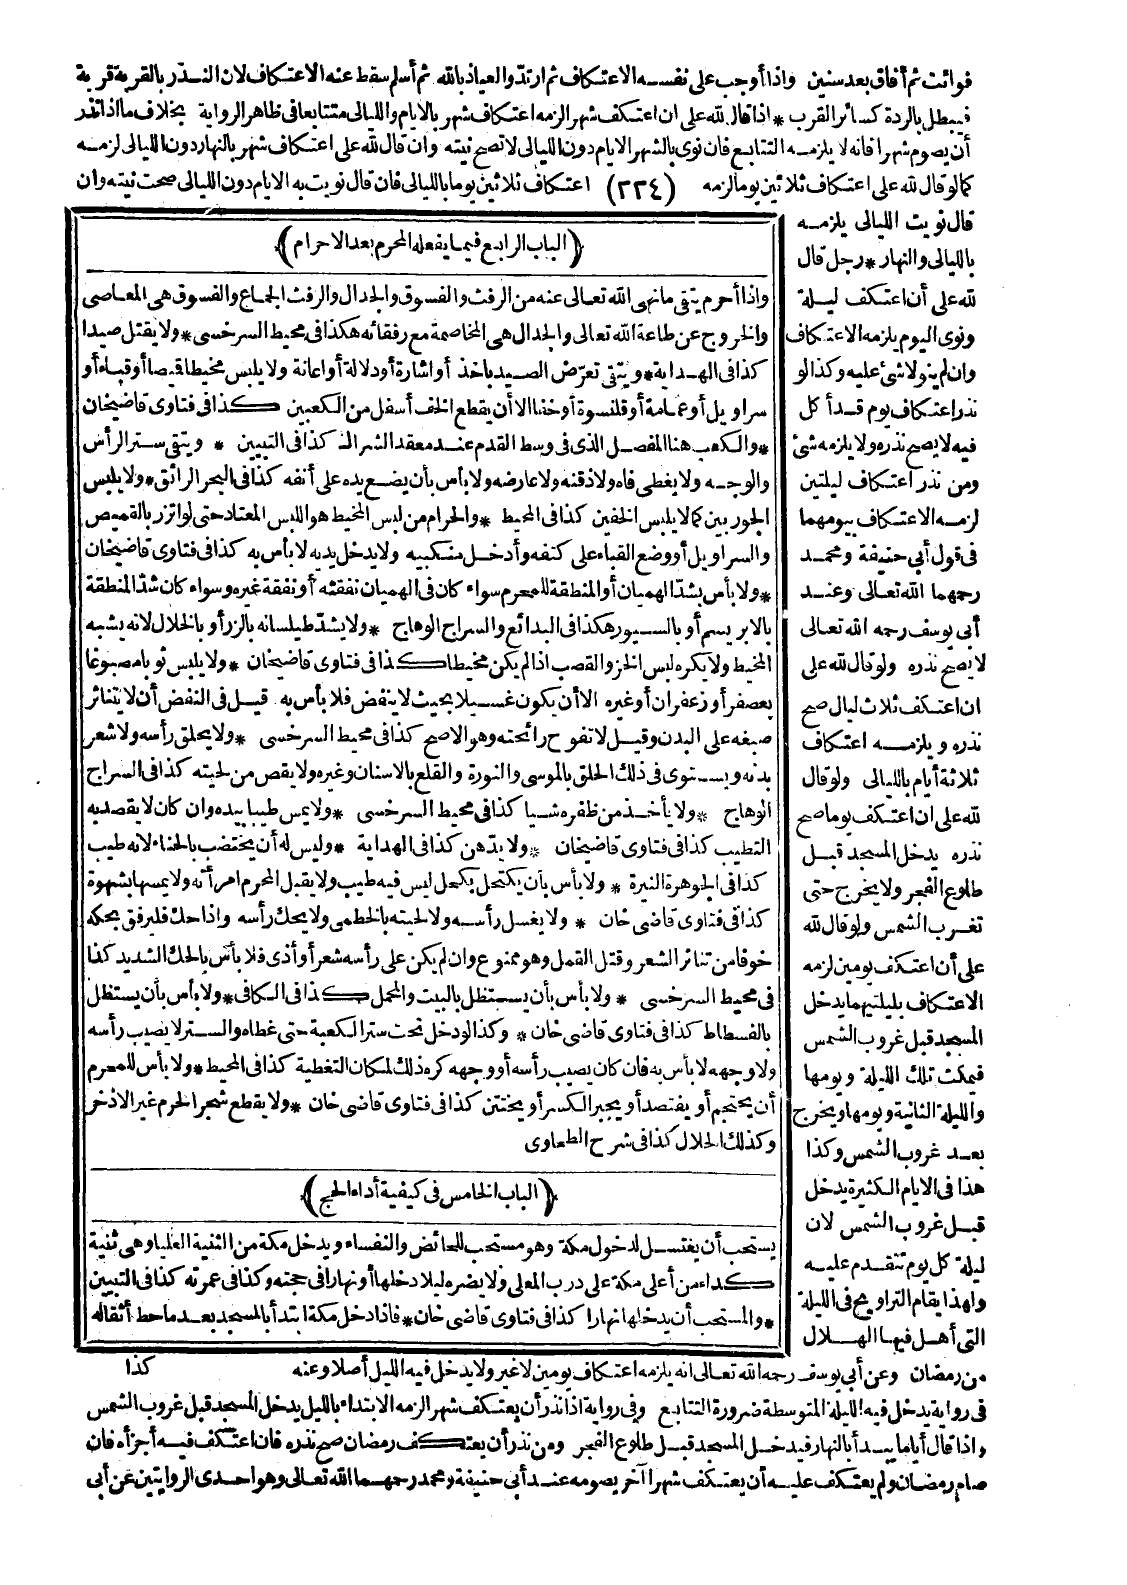 فوائت ثم أفاق بعد سنين واذا أوجب على نفسه الاعتكاف ثم ارتد والعياذ بالله ثم أسلم سقط عنه الاعتكاف لان النذر بالقربة قربة
فيبطل بالردة كسائر القرب * اذا قال لله على ان اعتكف شهر الزمه اعتكاف شهر بالايام والليالى متتابعا فى ظاهر الرواية بخلاف ما اذا نذر
أن يصوم شهرا فانه لا يلزمه التتابع فان نوى بالشهر الايام دون الليالى لا تصح نيته وان قال لله على اعتكاف شهر بالنهار دون الليالى لزمه
كما لو قال لله على اعتكاف ثلاثين يوما لزمه (٢٢٤) اعتكاف ثلاثين يوما بالليالى فان قال نويت به الايام دون الليالى صحت نيته وان
قال نويت الليالى يلزمه
بالليالى والنهار * رجل قال
لله على أن اعتكف ليلة
ونوى اليوم يلزمه الاعتكاف
وان لم ينو لا شئ عليه وكذا لو
نذر اعتكاف يوم قد أكل
فيه لا يصح نذره ولا يلزمه شئ
ومن نذر اعتكاف ليلتين
لزمه الاعتكاف بيومهما
فى قول أبى حنيفة ومحمد
رحمهما الله تعالى وعند
أبى يوسف رحمه الله تعالى
لا يصح نذره ولو قال لله على
ان اعتكف ثلاث ليال صح
نذره ويلزمه اعتكاف
ثلاثة أيام بالليالى ولو قال
لله على ان اعتكف يوما صح
نذره يدخل المسجد قبل
طلوع الفجر ولا يخرج حتى
تغرب الشمس ولو قال لله
على أن اعتكف يومين لزمه
الاعتكاف بليلتيهما يدخل
المسجد قبل غروب الشمس
فيمكث تلك الليلة ويومها
والليلة الثانية ويومها ويخرج
بعد غروب الشمس وكذا
هذا فى الايام الكثيرة يدخل
قبل غروب الشمس لان
ليلة كل يوم تتقدم عليه
ولهذا يقام التراويح فى الليلة
التى أهل فيها الهلال
(الباب الرابع فيما يفعله المحرم بعد الاحرام)
واذا أحرم يتقى ما نهى الله تعالى عنه من الرفث والفسوق والجدال والرفث الجماع والفسوق هى المعاصى
والخروج عن طاعة الله تعالى والجدال هى المخاصمة مع رفقائه هكذا فى محيط السرخسى * ولا يقتل صيدا
كذا فى الهداية * ويتقى تعرض الصيد باخذ أو اشارة أو دلالة أو اعانة ولا يلبس مخيطا قيصا أو قباء أو
سراويل أو عمامة أو قلنسوة أو خفا الا أن يقطع الخف أسفل من الكعبين كذا فى فتاوى قاضيخان
* والكعب هنا المفصل الذى فى وسط القدم عند معقد الشراك كذا فى التبيين * ويتقى ستر الرأس
والوجه ولا يغطى فاه ولا ذقنه ولا عارضه ولا بأس بأن يضع يده على أنفه كذا فى البحر الرائق * ولا يلبس
الجوربين كما لا يلبس الخفين كذا فى المحيط * والحرام من لبس المخيط هو اللبس المعتاد حتى لو اتزر بالقميص
والسراويل أو وضع القباء على كتفه وأدخل منكبيه ولا يدخل يديه لا بأس به كذا فى فتاوى قاضيخان
* ولا بأس بشد الهميان أو المنطقة للمحرم سواء كان فى الهميان نفقته أو نفقة غيره وسواء كان شد المنطقة
بالابريسم أو بالسيور هكذا فى البدائع والسراج الوهاج * ولا يشد طيلسانه بالزر أو بالخلال لانه يشبه
المخيط ولا يكره لبس الخز والقصب اذا لم يكن مخيطا كذا فى فتاوى قاضيخان * ولا يلبس ثوبا مصبوغا
بعصفر أو زعفران أو غيره الا أن يكون غسيلا بحيث لا ينفض فلا بأس به قيل فى النفض أن لا يتناثر
صبغه على البدن وقيل لا تفوح رائحته وهو الاصح كذا فى محيط السرخسى * ولا يحلق رأسه ولا شعر
بدنه ويستوى فى ذلك الحلق بالموسى والنورة والقلع بالاسنان وغيره ولا يقص من لحيته كذا فى السراج
الوهاج * ولا يأخذ من ظفره شيا كذا فى محيط السرخسى * ولا يمس طيبا بيده وان كان لا يقصد به
التطيب كذا فى فتاوى قاضيخان * ولا يدّهن كذا فى الهداية * وليس له أن يختضب بالحناء لانه طيب
كذا فى الجوهرة النيرة * ولا بأس بأن يكتحل بكحل ليس فيه طيب ولا يقبل المحرم امرأته ولا يمسها بشهوة
كذا فى فتاوى قاضى خان * ولا يغسل رأسه ولا لحيته بالخطمى ولا يحك رأسه واذا حك فليرفق بحكه
خوفا من تناثر الشعر وقتل القمل وهو ممنوع وان لم يكن على رأسه شعر أو أذى فلا بأس بالحك الشديد كذا
فى محيط السرخسى * ولا بأس بأن يستظل بالبيت والمحمل كذا فى الكافى * ولا بأس بأن يستظل
بالفسطاط كذا فى فتاوى قاضى خان * وكذا لو دخل تحت ستر الكعبة حتى غطاه والستر لا يصيب رأسه
ولا وجهه لا بأس به فان كان يصيب رأسه أو وجهه كره ذلك لمكان التغطية كذا فى المحيط * ولا بأس للمحرم
أن يحتجم أو يفتصد أو يجبر الكسر أو يختتن كذا فى فتاوى قاضى خان * ولا يقطع شجر الحرم غير الاذخر
وكذلك الحلال كذا فى شرح الطحاوى
(الباب الخامس فى كيفية أداء الحج)
يستحب أن يغتسل لدخول مكة وهو مستحب للحائض والنفساء ويدخل مكة من الثنية العليا وهى ثنية
كداء من أعلى مكة على درب المعلى ولا يضره ليلا دخلها أو نهارا فى حجته وكذا فى عمرته كذا فى التبيين
* والمستحب أن يدخلها نهارا كذا فى فتاوى قاضى خان * فاذا دخل مكة ابتدأ بالمسجد بعد ما حط أثقاله
من رمضان وعن أبى يوسف رحمه الله تعالى انه يلزمه اعتكاف يومين لا غير ولا يدخل فيه الليل أصلا وعنه كذا
فى رواية يدخل فيه الليلة المتوسطة ضرورة التتابع وفى رواية اذا نذر أن يعتكف شهر الزمه الابتداء بالليل يدخل المسجد قبل غروب الشمس
واذا قال أياما يبدأ بالنهار فيدخل المسجد قبل طلوع الفجر ومن نذر أن يعتكف رمضان صح نذره فان اعتكف فيه أجزأه فان
صام رمضان ولم يعتكف عليه أن يعتكف شهرا آخر يصومه عند أبى حنيفة ومحمد رحمهما الله تعالى وهو احدى الروايتين عن أبى